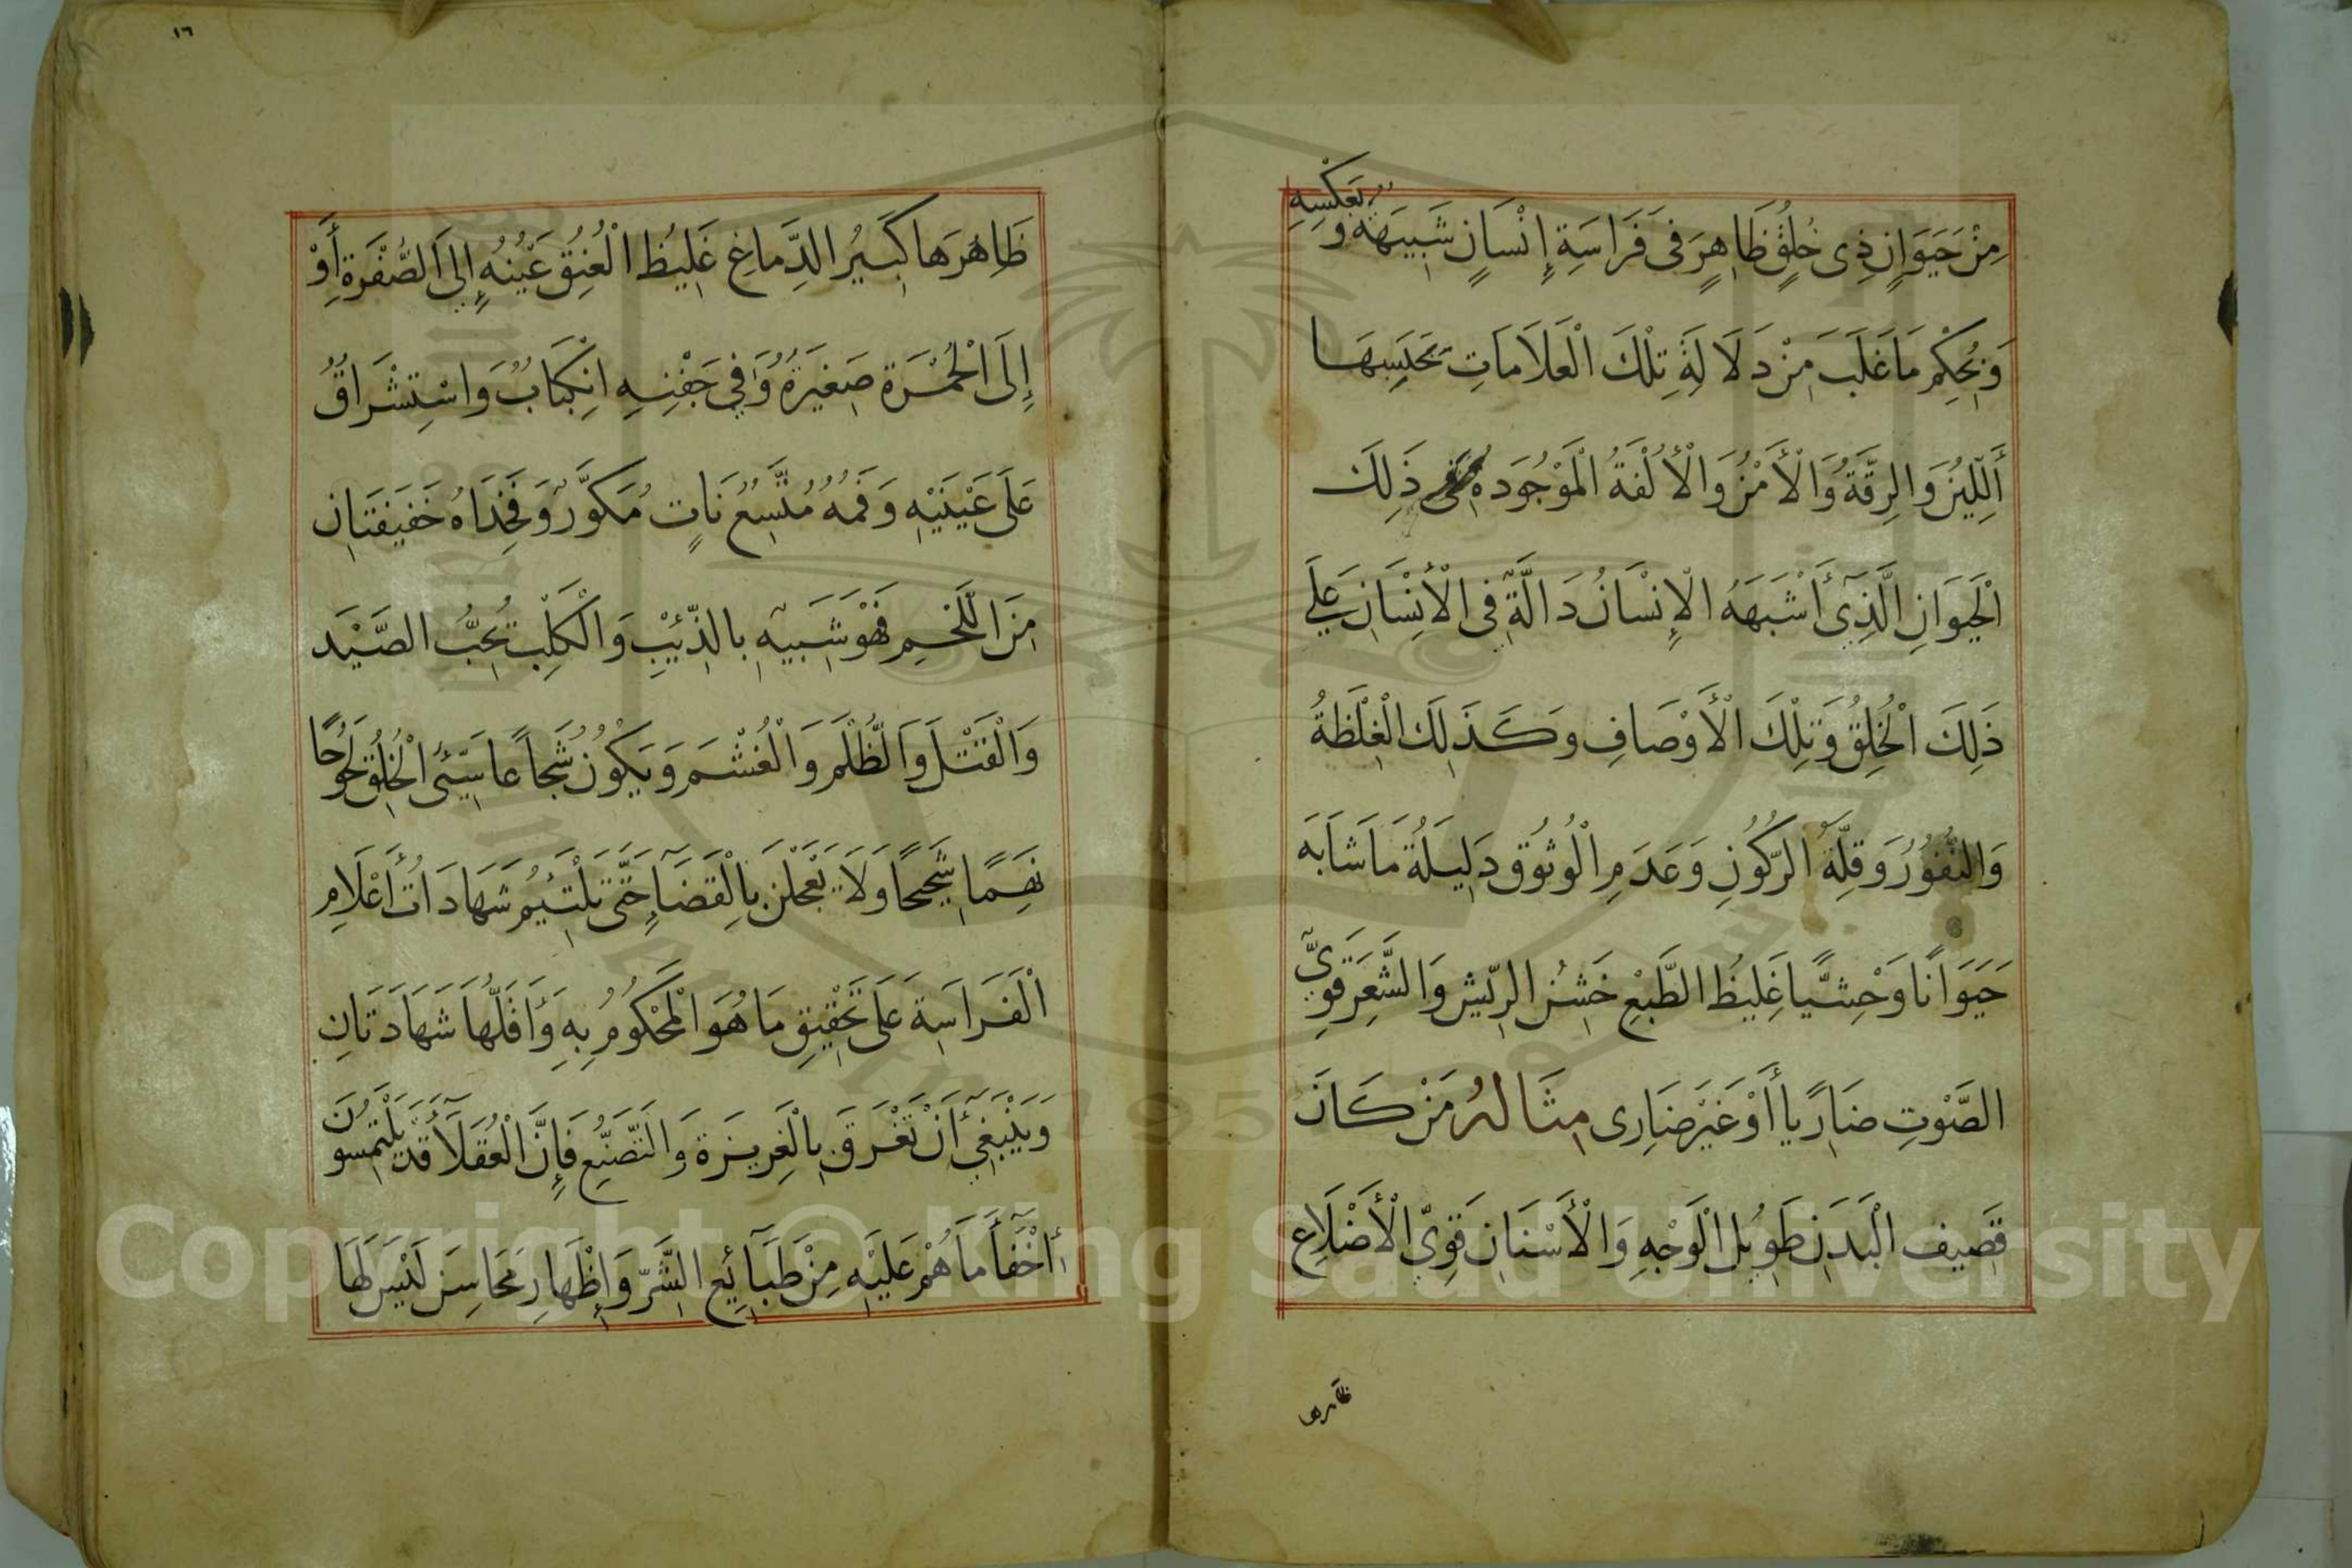 مِنْ حَيَوَانٍ ذِى خُلِقٍ ظَاهِرٍ فى فَرَاسَةِ إِنْسَانٍ شَبِيهَهُ وَبَعَكْسِهِ
وَيُحْكِم مَا غَلَبَ مِنْ دَلَالَةِ تِلْكَ الْعَلَامَاتِ بَحَسِبِهَا
أَلِلّيْنُ وَالرِقَّةُ وَالْأَمْنُ وَالْأُلْفَةُ الْمَوْجُودَه فى ذَلِكَ
الْحَيوَانِ الَّذِي أَشْبَهَهُ الْإِنْسَانُ دَالَّةٌ فِي الْأنِسَانِ عَلَي
ذَلِكَ الْخُلِقُ وَتِلْكَ الْأَوْصَافِ وكَذَلِكَ الْغِلْظَةُ
وَالنُّفُورُ وَقِلَّةُ الرَّكُونِ وَعَدَمِ الْوثُوق دَلِيلَةُ مَا شَابَهَ
حَيَوَانًا وَحْشِيًّا غَلِيظُ الطَّبْعِ خَشِنُ الرِيّشِ وَالشَّعِرَ قَوِيِّ
الصَّوْتِ ضَارًيا أَوْ غَيْرَ ضَارِى مِثَالهُ مَنْ كَانَ
قَصِيف الْبَدَنِ طَوِيل الْوَجْهِ وَالْأَسْنَانِ قَوِيّ الْأَضْلَاعِ
ظاهرها
١٦
ظَاهِرَهَا كَبِيرُ الدِّمَاغِ غَلِيظُ الْعُنِقُ عَيْنُهُ إِلىَ الصُّفْرَةِ أَوْ
إِلَى الْحُمْرَة صَغِيَرةُ وَفِي جَفْنِهِ انْكِبَابٌ وَاسْتِشْرَاقُ
عَلَى عَيْنَيْهِ وَفَمُهُ مُتَّسِعُ نَاتٍ مُكَوَّرٌ وَفَخِذَاهُ خَفَيفَتَانِ
مِنَ اللَّحْمِ فَهْوَ شَبِيَهٌ بالذّئِيْبِ وَالْكَلْبِ تُحِبُّ الصَّيْدَ
وَالْقَتْلَ وَالظُّلْمَ وَالْغُشْمَ وَيَكُوُنُ شُجَاعًا سَيّئَ الْخُلِقِ لَحُوحًا
نَهِمًا شَحِيحًا وَلَا تَعْجَلَنْ بِالْقَضَاءِ حَتَّى تَلْتَئِيُم شَهَادَاتُ أَعْلَامِ
الْفَرَاسَةِ عَلَى تَحْقِيْقِ مَا هُوَ الْمَحْكُومُ بِهِ وَأَقَلُّهَا شَهَادَتَانِ
وَيَنْبَغِي أَنْ تَغْرَق بِالْغَرِيزَة وَالتَصَنُّعِ فَإِنَّ الْعُقَلَآَ قَدْ يَلْتِمَسُونَ
أخْفَآَ مَا هُمْ عَلَيْهِ مِنْ طَبَآئِعِ الشَّرّ وَإِظْهَارِ مَحَاسِنَ لَيْسَ لَهَا